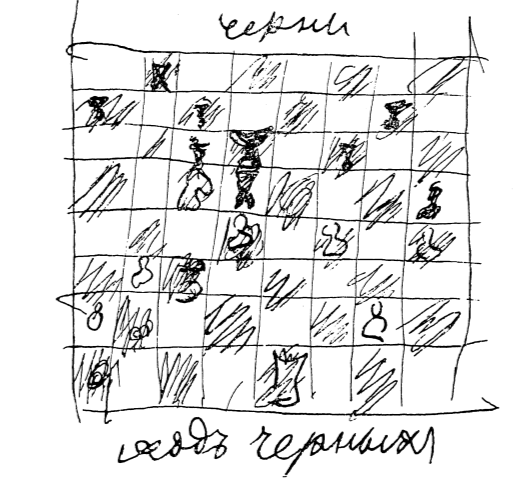 черни
ходъ черныхъ